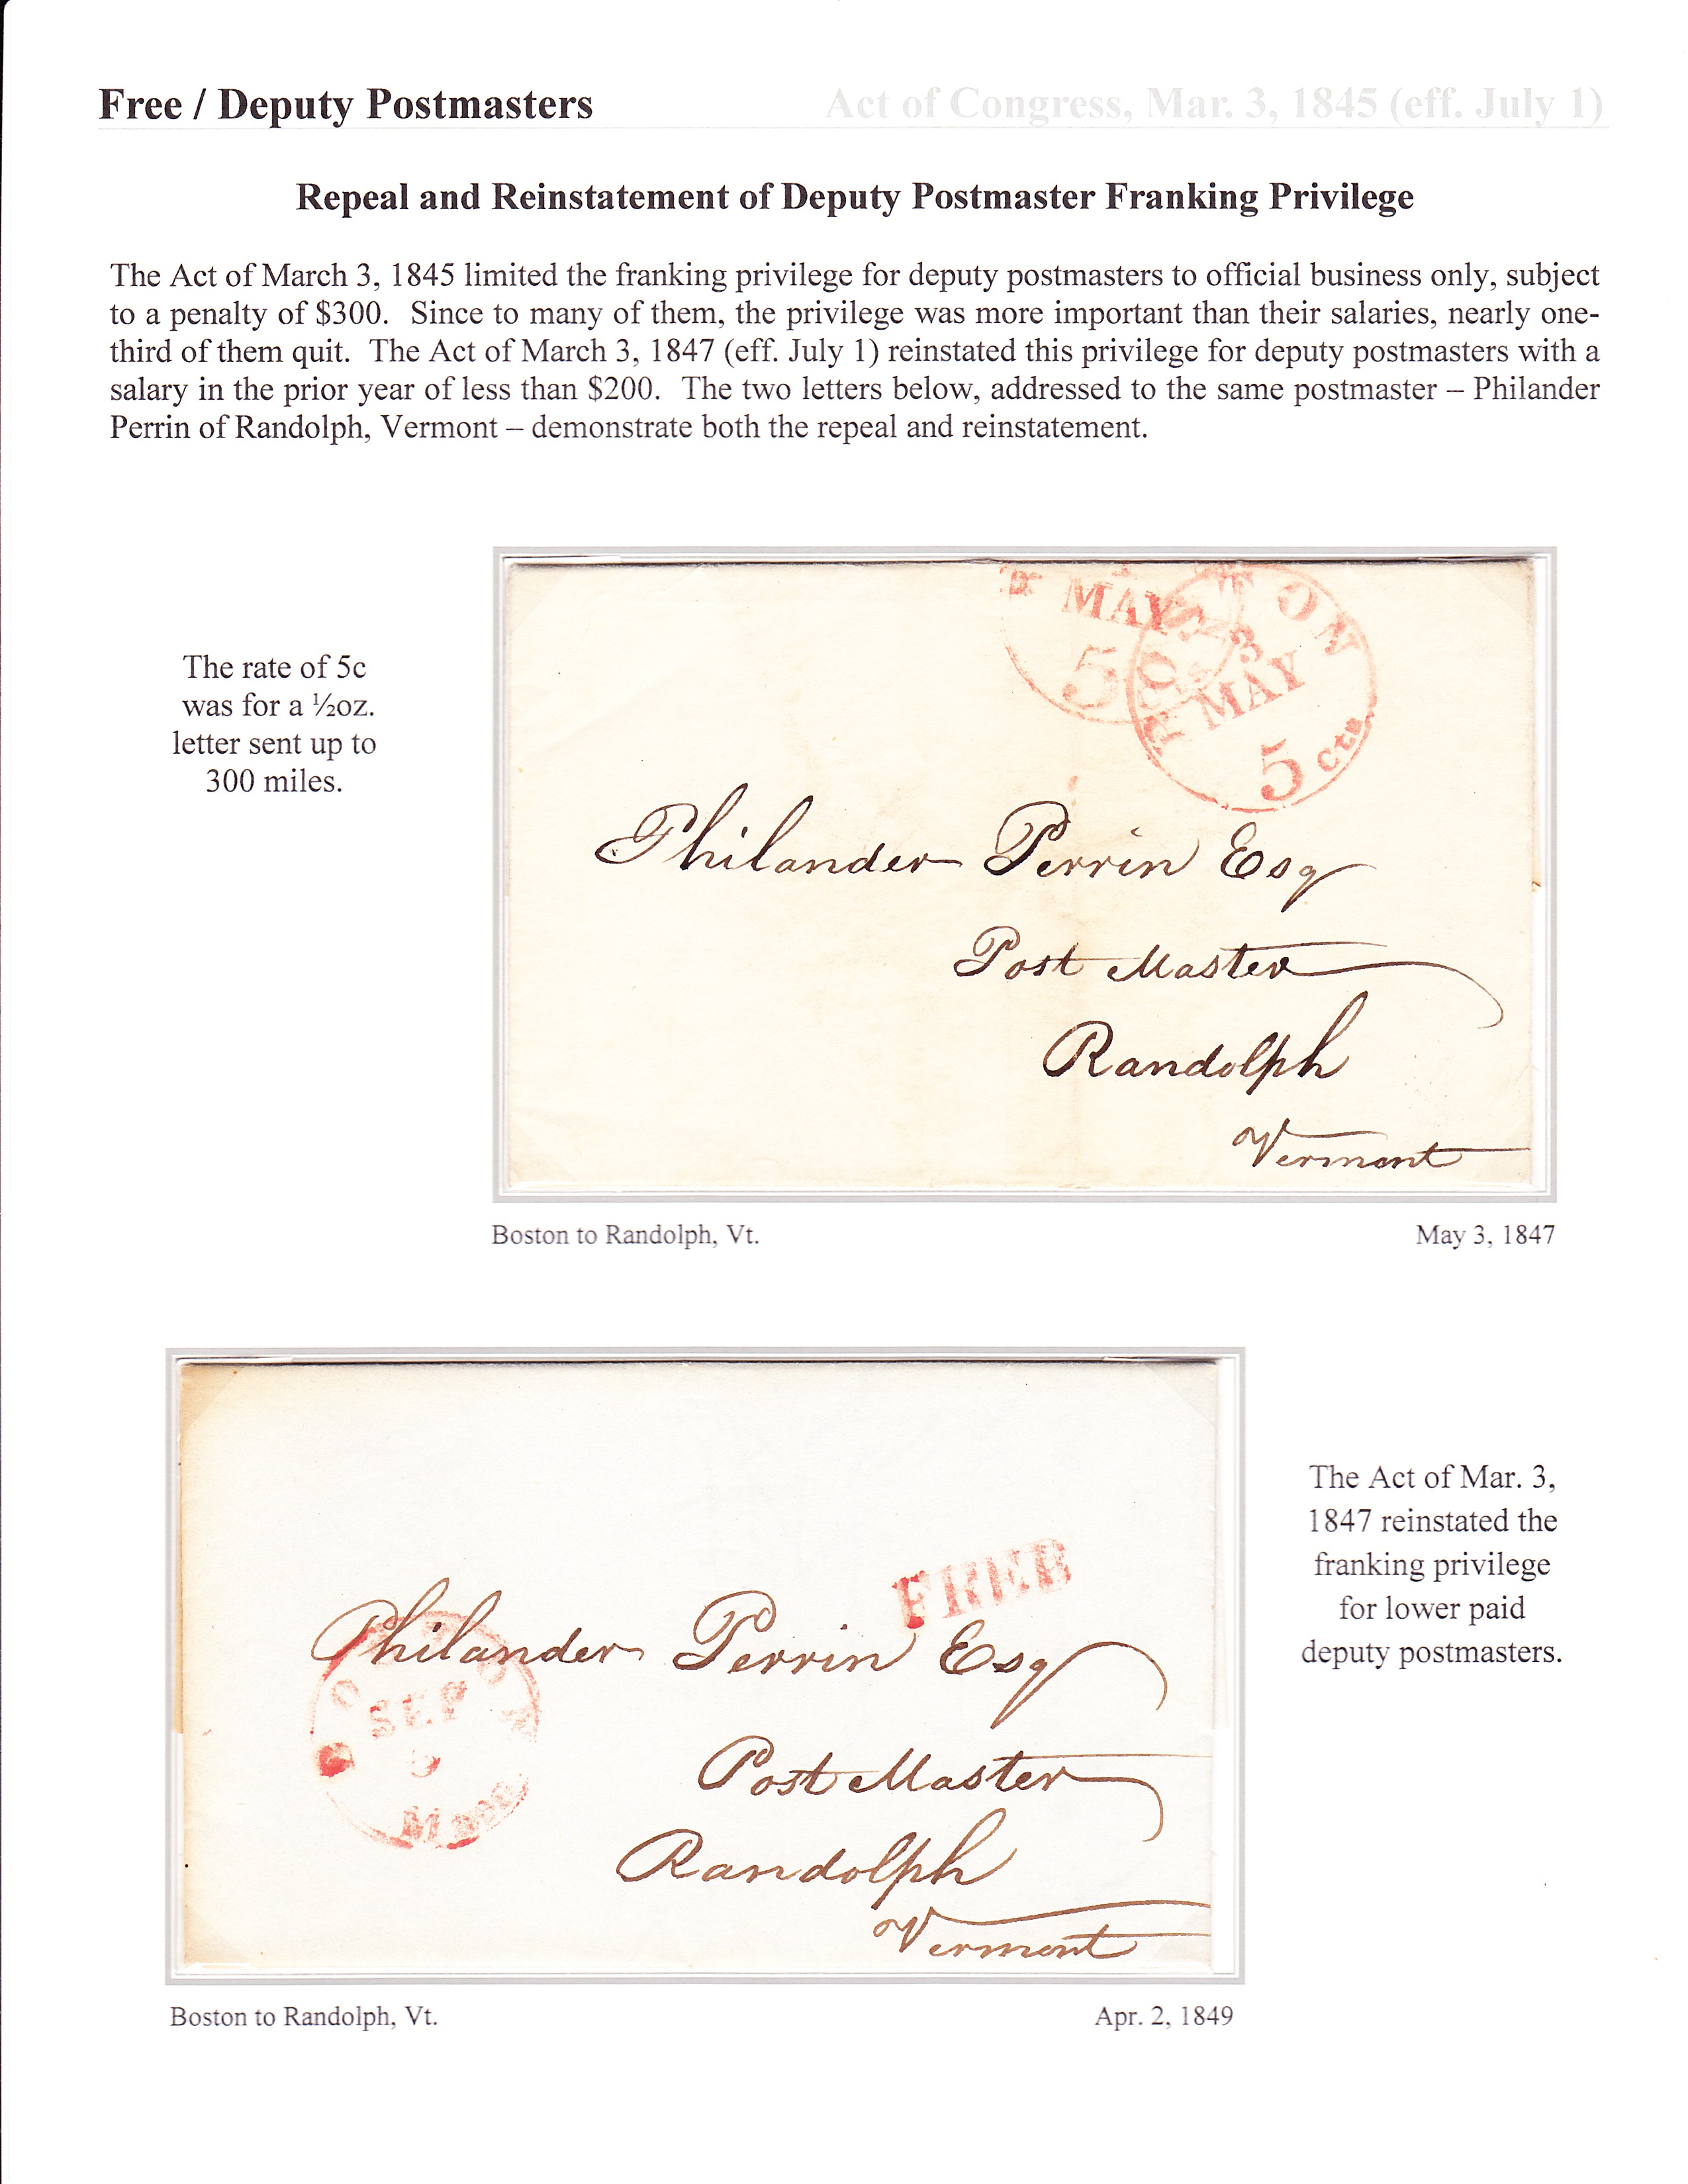 Free / Deputy Postmasters
Act of Congress, Mar. 3, 1845 (eff. July 1)
Repeal and Reinstatement of Deputy Postmaster Franking Privilege
The Act of March 3, 1845 limited the franking privilege for deputy postmasters to official business only, subject
to a penalty of $300. Since to many of them, the privilege was more important than their salaries, nearly one-
third of them quit. The Act of March 3, 1847 (eff. July 1) reinstated this privilege for deputy postmasters with a
salary in the prior year of less than $200. The two letters below, addressed to the same postmaster – Philander
Perrin of Randolph, Vermont – demonstrate both the repeal and reinstatement.
The rate of 5c
was for a ½oz.
letter sent up to
300 miles.
MAY
5
BOSTON
3
MAY
5 cts
Philander Perrin Esq
Post Master
Randolph
Vermont
Boston to Randolph, Vt.
May 3, 1847
FREE
Philander Perrin Esq
SEP
Mass
Post Master
Randolph
Vermont
The Act of Mar. 3,
1847 reinstated the
franking privilege
for lower paid
deputy postmasters.
Boston to Randolph, Vt.
Apr. 2, 1849